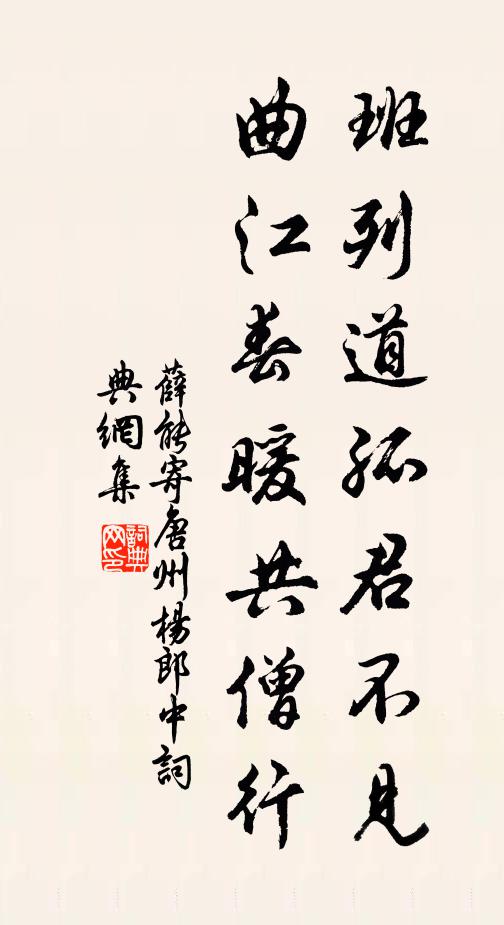 班列道孤君不見
曲江春暖共僧行
薛能寄唐州楊郎中詞
典網集
詞典網印